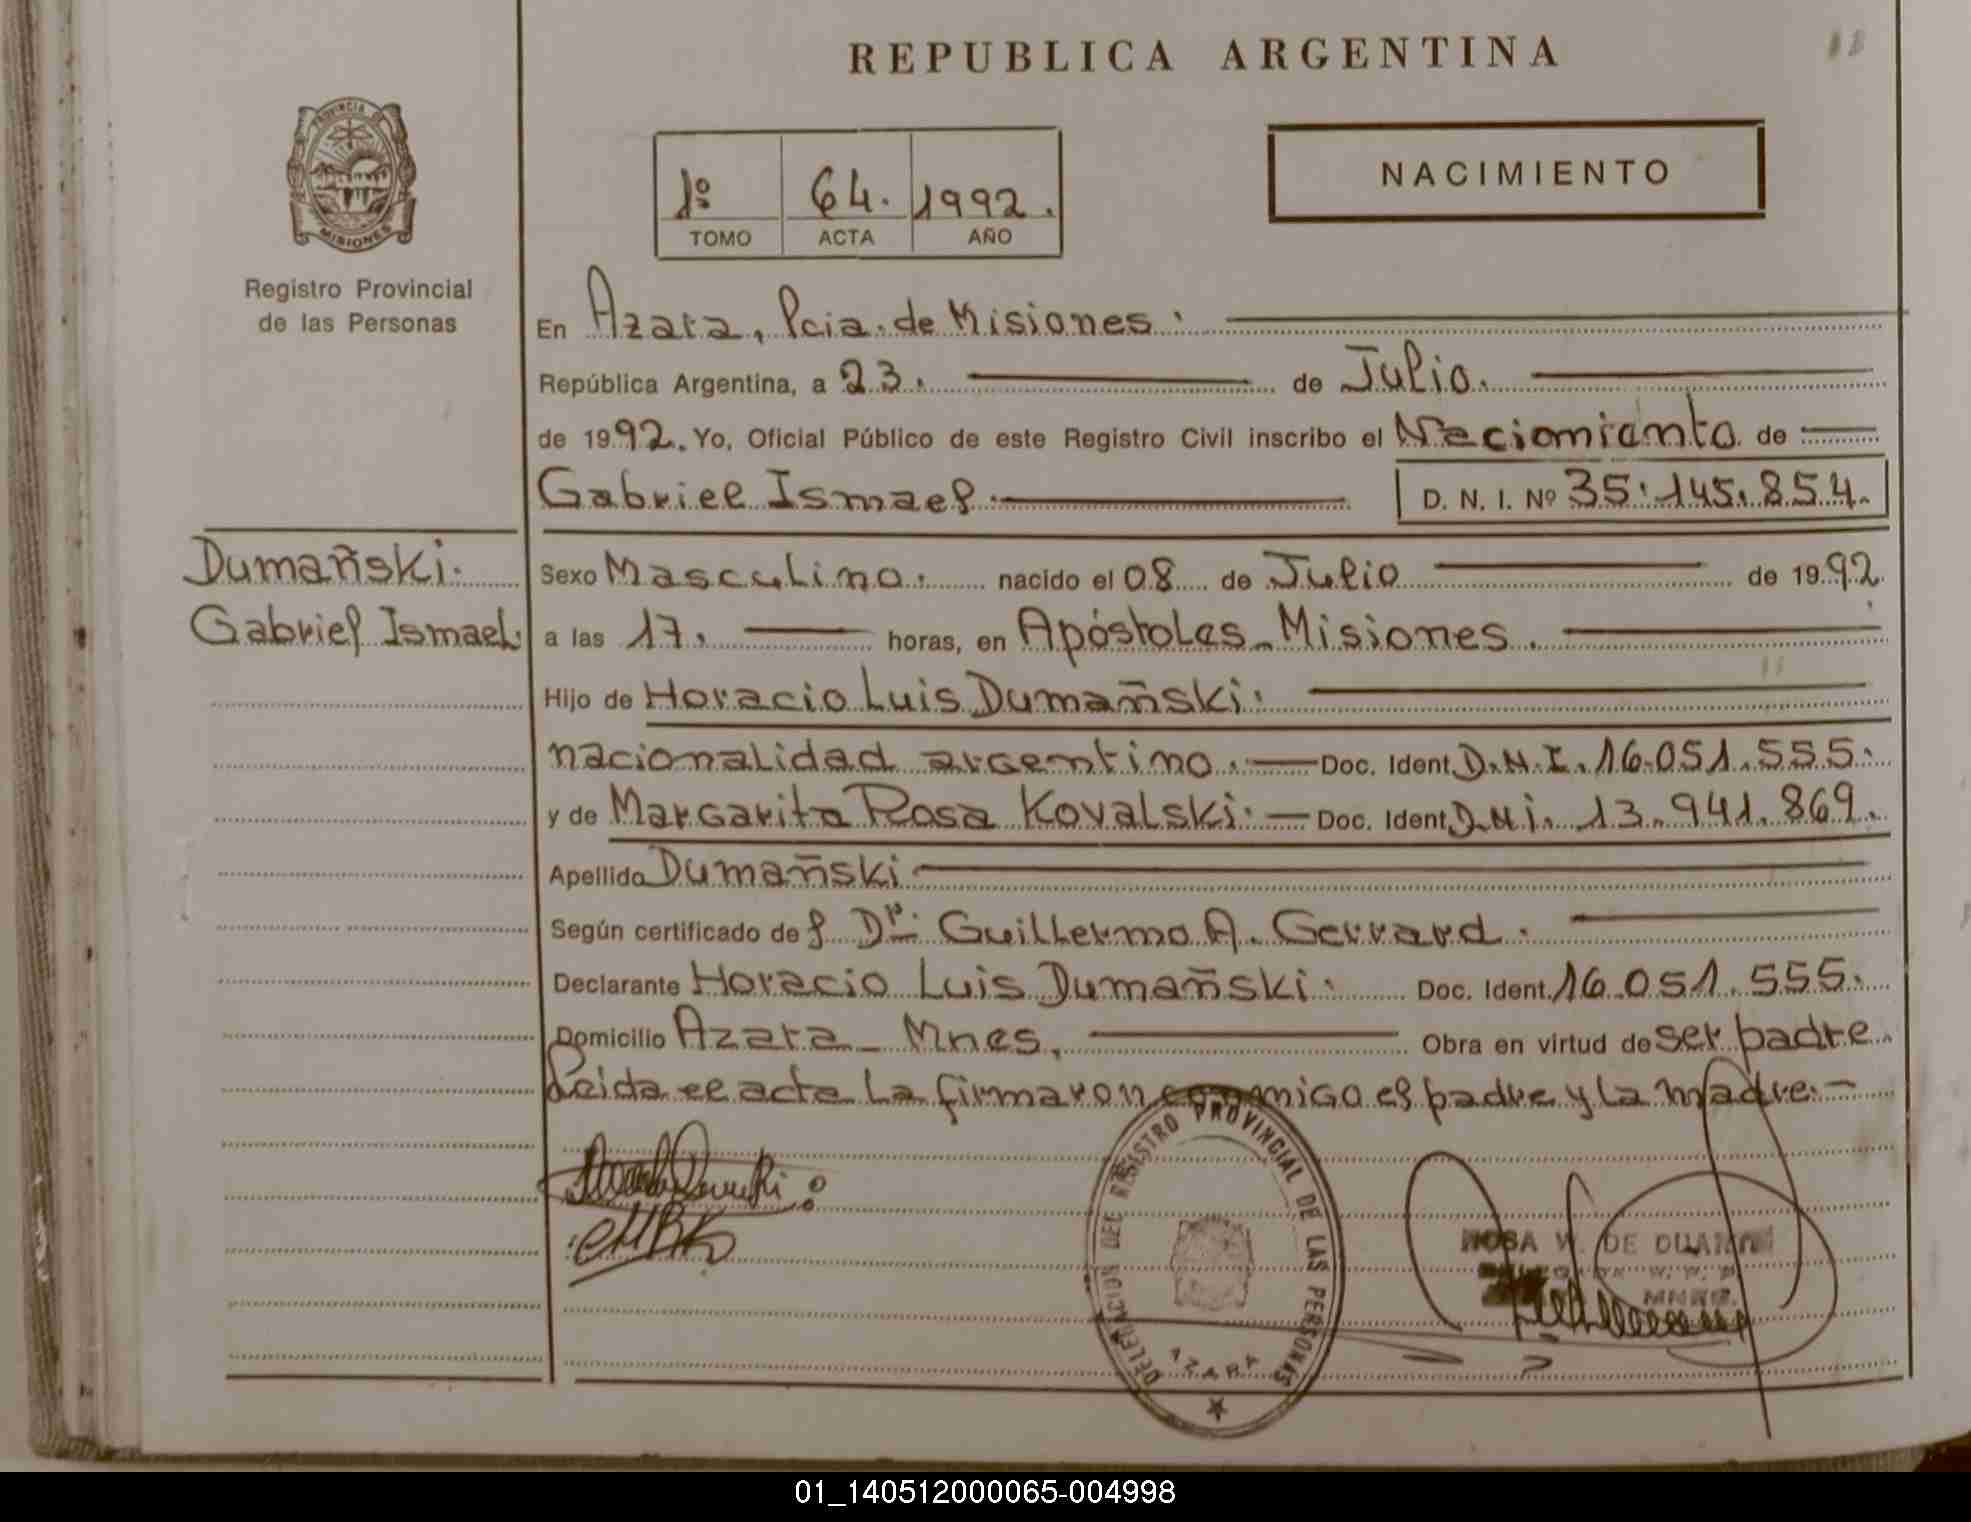 REPUBLICA ARGENTINA
PROVINCIA DE
MISIONES
Registro Provincial
de las Personas
1º 64. 1992.
TOMO ACTA AÑO
NACIMIENTO
En Azara, Pcia. de Misiones.
República Argentina, a 23. de Julio.
de 1992. Yo, Oficial Público de este Registro Civil inscribo el Nacimiento de
Gabriel Ismael. D. N. I. Nº 35.145.854.
Dumañski.
Gabriel Ismael.
Sexo Masculino. nacido el 08 de Julio de 1992
a las 17. horas, en Apóstoles - Misiones.
Hijo de Horacio Luis Dumañski.
nacionalidad argentino. Doc. Ident. D.N.I. 16.051.555.
y de Margarita Rosa Kovalski. Doc. Ident. D.N.i. 13.941.869.
Apellido Dumañski
Según certificado del Dr. Guillermo A. Gerrard.
Declarante Horacio Luis Dumañski. Doc. Ident. 16.051.555.
Domicilio Azara - Mnes. Obra en virtud de ser padre.
Leida el acta la firmaron conmigo el padre y la madre.
DELEGACION DEL REGISTRO PROVINCIAL DE LAS PERSONAS
AZARA
ROSA W. DE
01_140512000065-004998